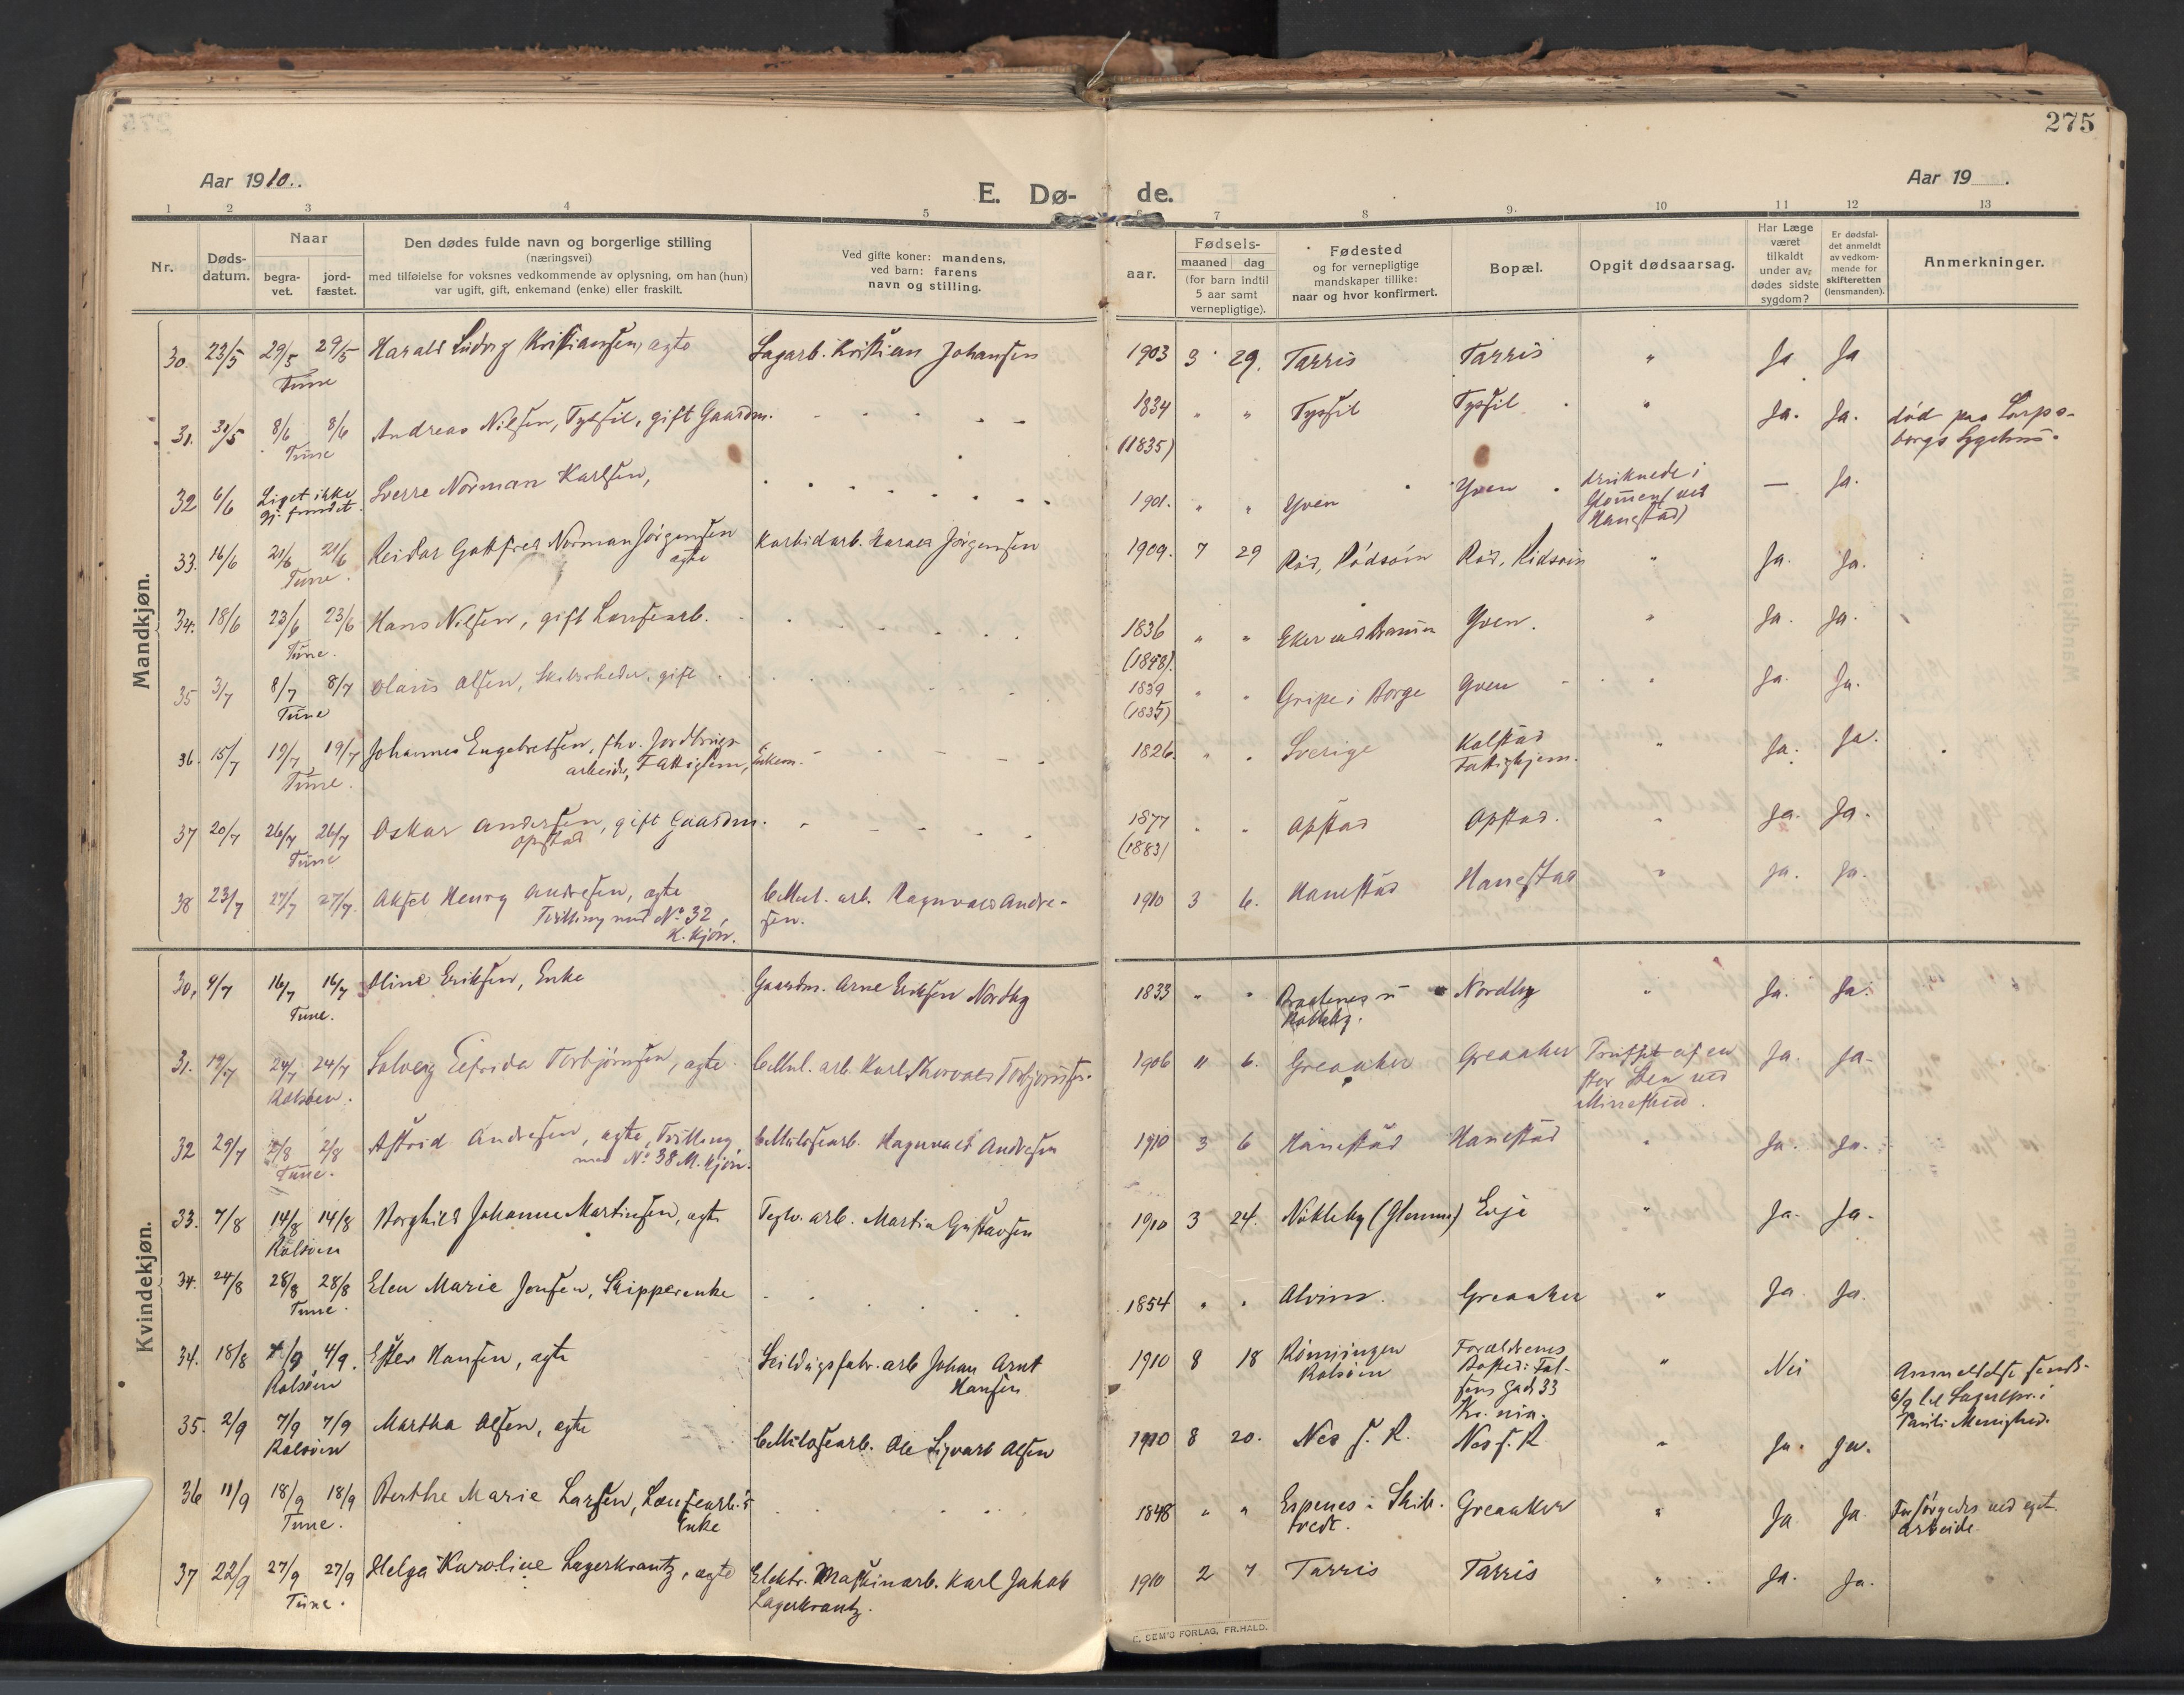 275
Aar 1910.
E. Dø-
de.
Aar 19 .
1 2 3 4 5 6 7 8 9. 10 11 12 13
Nr.
Døds-
datum.
Naar
begra-
vet.
jord-
fæstet.
Den dødes fulde navn og borgerlige stilling
(næringsvei)
med tilføielse for voksnes vedkommende av oplysning, om han (hun)
var ugift, gift, enkemand (enke) eller fraskilt.
Ved gifte koner: mandens,
ved barn: farens
navn og stilling.
aar.
Fødsels-
maaned dag
(for barn indtil
5 aar samt
vernepligtige).
Fødested
og for vernepligtige
mandskaper tillike:
naar og hvor konfirmert.
Bopæl.
Opgit dødsaarsag.
Har Læge
været
tilkaldt
under av-
dødes sidste
sygdom?
Er dødsfal-
det anmeldt
av vedkom-
mende for
skifteretten
(lensmanden).
Anmerkninger.
Mandkjøn.
30. 23/5 29/5 29/5 Harald Ludvig Kristiansen, ægte Sagarb. Kristian Johansen 1903 3 29. Tarris Tarris " Ja Ja
Tune
31. 31/5 8/6 8/6 Andreas Nilsen, Tyssil, gift Gaardm. 1834 " " Tyssil Tyssil " Ja. Ja. død paa Sarps-
Tune (1835) borgs Sygehus.
32 6/6 Liget ikke Sverre Norman Karlsen, 1901. " " Yven Yven druknede i — Ja.
gj. fundet. Glommen (ved
Hanestad)
33. 16/6 21/6 21/6 Reidar Gotfred Norman Jørgensen Karbidarb. Harald Jørgensen 1909. 7 29 Rød, Rødsøin Rød, Rødsøin " Ja. Ja.
Tune. ægte
34. 18/6 23/6 23/6 Hans Nilsen, gift Lansearb. 1836 " " Eker ved Yven. " Ja. Ja.
Tune. (1848).
35 3/7 8/7 8/7 Olaus Olsen, Skibsrheder, gift 1839 " " Gripe i Borge Yven " Ja. Ja.
Tune (1835)
36. 15/7 19/7 19/7 Johannes Engebretsen, fhv. Jordbrugs- 1826. " " Sverige Kalstad " Ja. Ja.
Tune. arbeider, Fattiglem, Enkem. Fattighjem.
37 20/7 26/7 26/7 Oskar Andersen, gift Gaardm. 1877 " " Opstad Opstad. " Ja. Ja.
Tune Opstad (1883)
38 23/7 27/7 27/7. Aksel Henry Andresen, ægte Cellul. arb. Ragnvald Andre- 1910 3 6. Hanestad Hanestad " Ja. Ja.
Trilling med No 32, sen.
K. kjøn.
Kvindekjøn.
30. 9/7 16/7 16/7 Oline Eriksen, Enke Gaardm. Arne Eriksen Nordby 1833 " " Nordby " Ja. Ja.
Tune.
31. 19/7 24/7 24/7 Solveig Elfrida Torbjørnsen, ægte Cellul. arb. Karl Thorvald Torbjørnsen. 1906 11 6. Greaaker Greaaker Truffet af en Ja. Ja.
Rolsøen. stor Sten ved
32 29/7 2/8 2/8 Astrid Andresen, ægte, Trilling Cellulosearb. Ragnvald Andresen 1910 3 6 Hanestad Hanestad " Ja. Ja.
Tune. med No 38 M. kjøn.
33. 7/8 14/8 14/8 Borghild Johanne Martinsen, ægte Teglv. arb. Martin Gustavsen 1910 3 24. Nøkleby (Glemm) Evje " Ja. Ja.
Rolsøen
34. 24/8 28/8 28/8 Elen Marie Jensen, Skipperenke 1854 " " Alvim. Greaaker " Ja. Ja.
Tune.
34. 18/8 4/9 4/9. Ester Hansen, ægte Seildugsfabr. arb Johan Arnt 1910 8 18 Rønningen Forældrenes " Nei Anmeldelse sendt
Rolsøen Hansen Rolsøen Bosted: Tof- 6/9 til Sognepr. i
tens Gade 33 Pauli Menighed.
Kr. nia.
35. 2/9 7/9 7/9 Martha Olsen, ægte Cellulosearb. Ole Sigvart Olsen 1910 8 20. Nes f. R. Nes f. R " Ja. Ja.
Rolsøen
36 11/9 18/9 18/9 Berthe Marie Larsen, Lansearb.'s 1848 " " Espenes i Skib- Greaaker " Ja Ja Forsørgedes ved eget
Tune. Enke tvedt. Arbeide.
37 22/9 27/9 27/9 Helga Karoline Lagerkrantz, ægte Elektr. Maskinarb. Karl Jakob 1910 2 7 Tarris Tarris " Ja. Ja.
Tune. Lagerkrantz.
E. SEM'S FORLAG, FR.HALD.